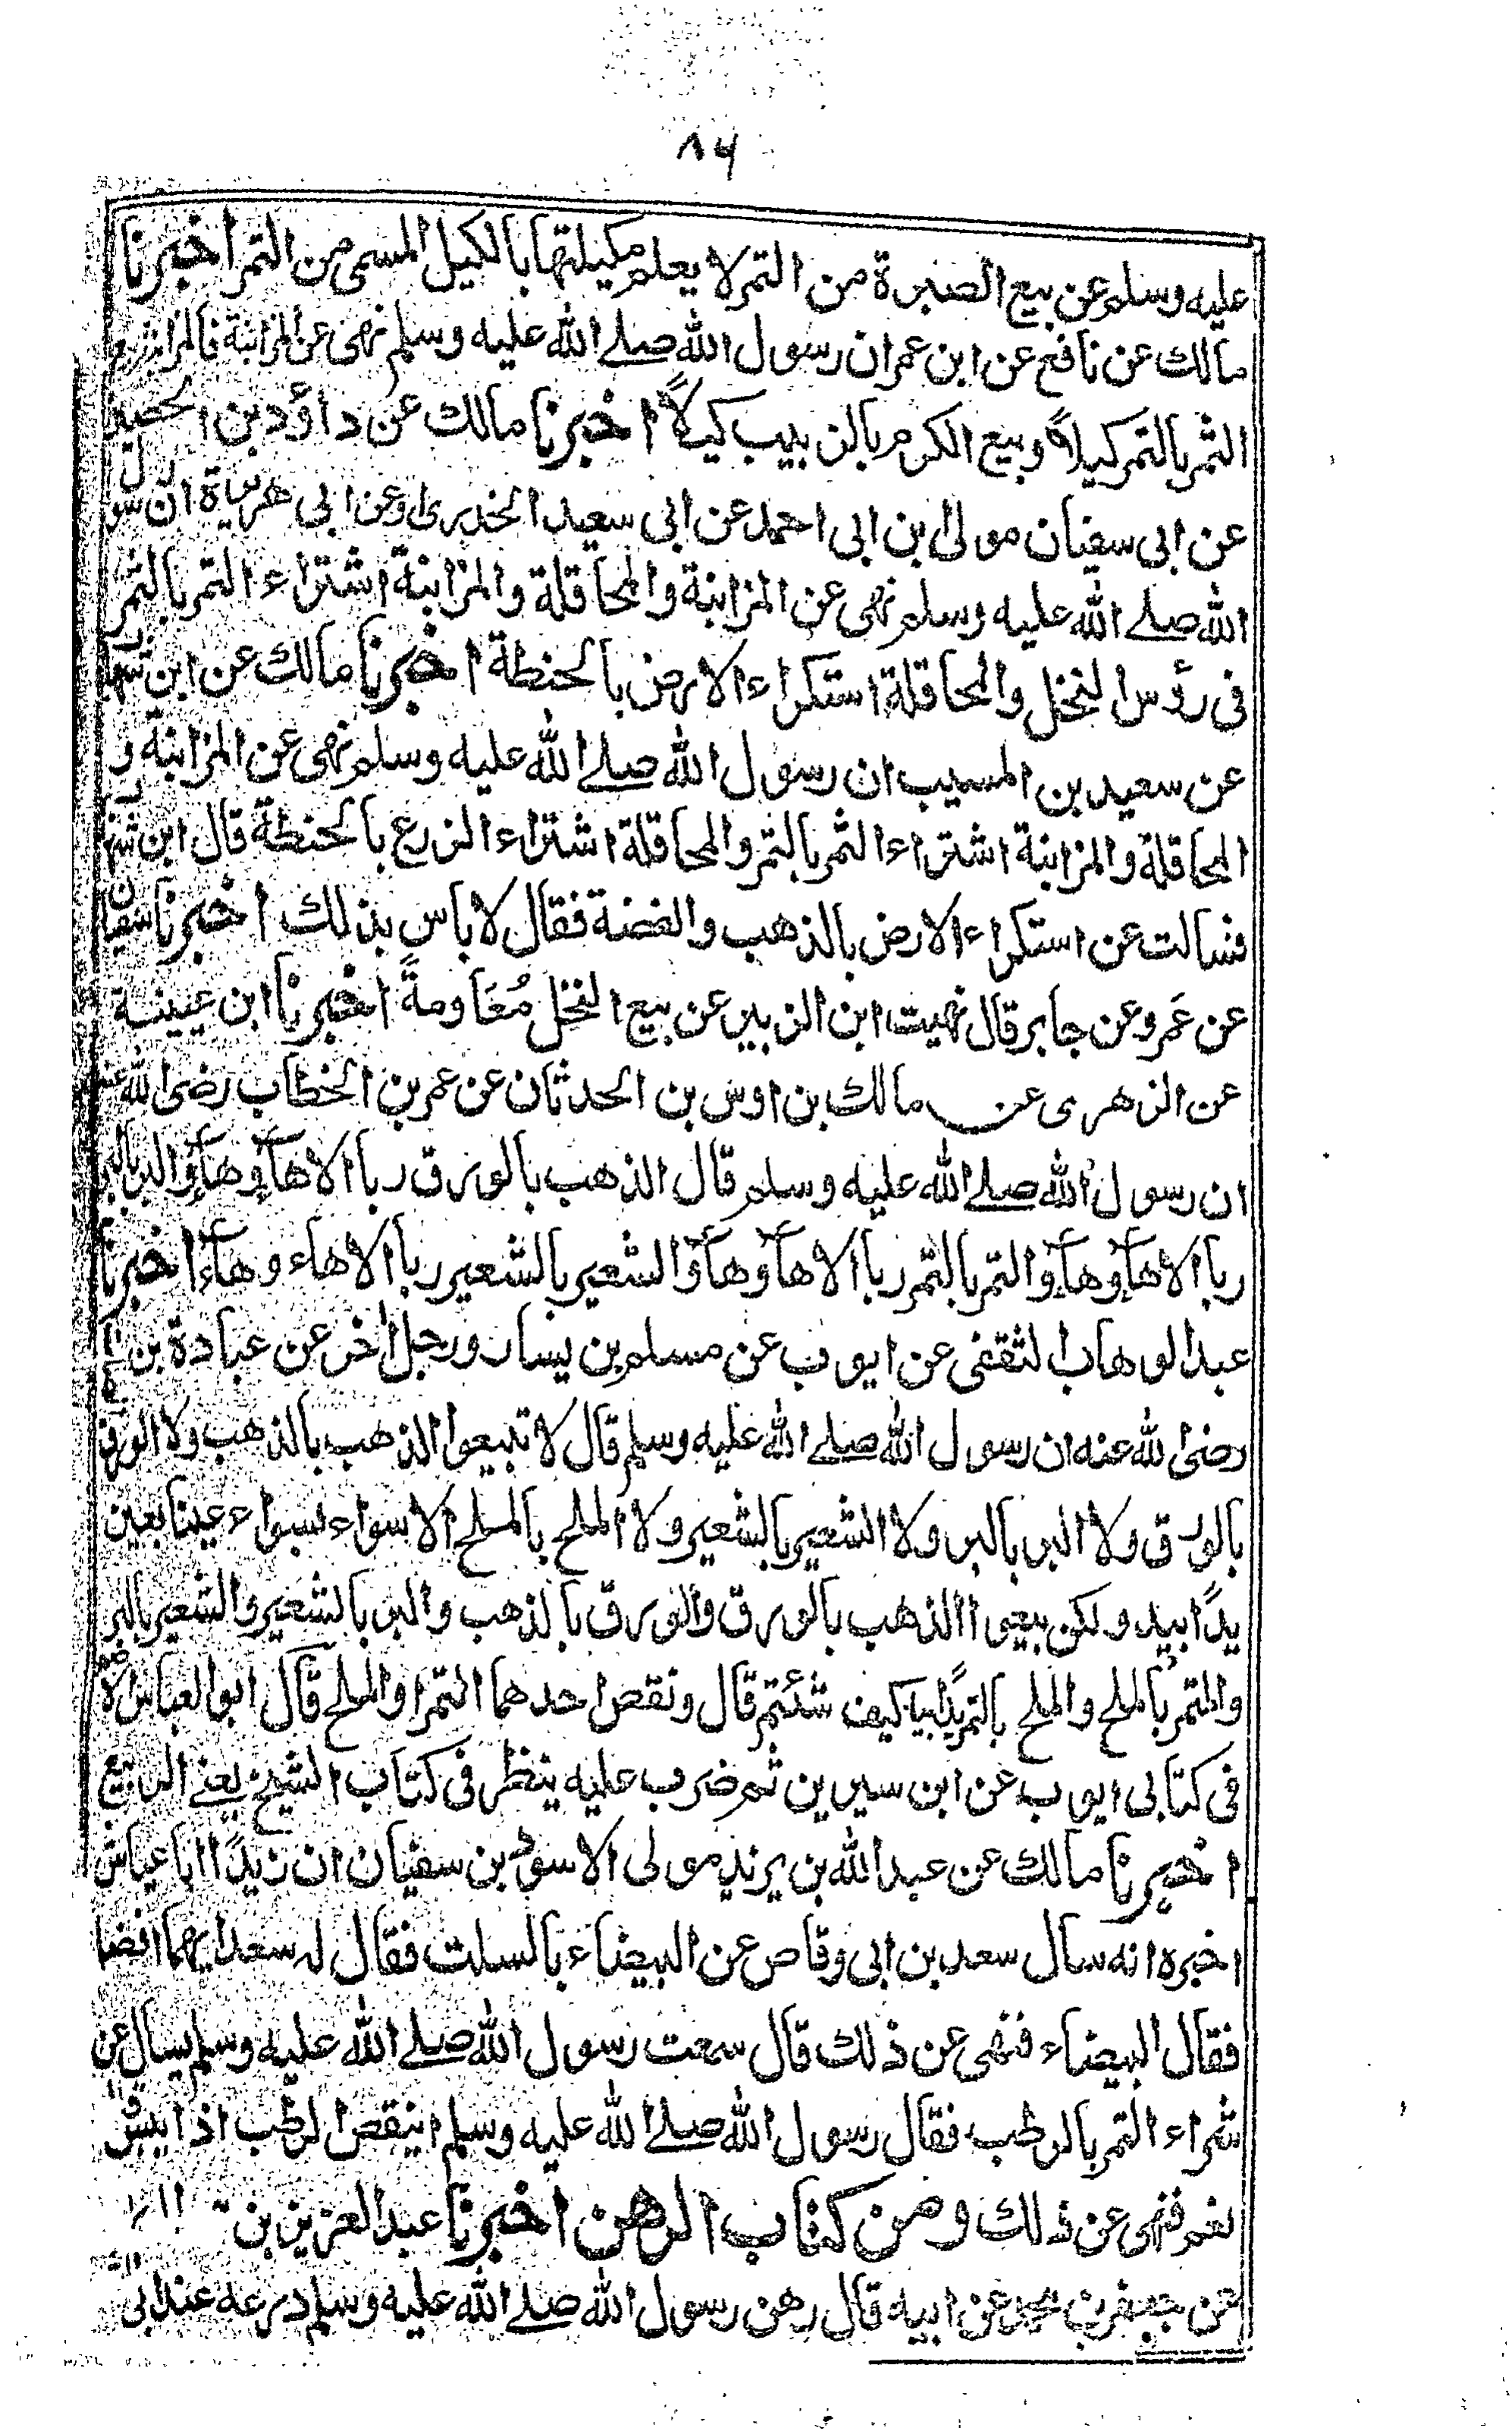 ٨٤
عليه وسلم عن بيع الصبرة من التمر لا يعلم مكيلتها بالكيل المسمى من التمر اخبرنا
مالك عن نافع عن ابن عمر ان رسول الله صلے الله عليه وسلم نهى عن المزابنة والمزابنة بيع
الثمر بالتمر كيلاً وبيع الكرم بالزبيب كيلاً اخبرنا مالك عن داؤد بن الحصين
عن ابى سفيان مولى ابن ابى احمد عن ابى سعيد الخدرى او عن ابى هريرة ان رسول
الله صلے الله عليه وسلم نهى عن المزابنة والمحاقلة والمزابنة اشتراء التمر بالتمر
فى رؤس النخل والمحاقلة استكراء الارض بالحنطة اخبرنا مالك عن ابن شهاب
عن سعيد بن المسيب ان رسول الله صلے الله عليه وسلم نهى عن المزابنة و
المحاقلة والمزابنة اشتراء الثمر بالتمر والمحاقلة اشتراء الزرع بالحنطة قال ابن شهاب
فسالت عن استكراء الارض بالذهب والفضة فقال لا باس بذلك اخبرنا سفيان
عن عَمرو عن جابر قال نهيت ابن الزبير عن بيع النخل مُعَاومةً اخبرنا ابن عيينة
عن الزهرى عن مالك بن اوس بن الحدثان عن عمر بن الخطاب رضى الله عنه
ان رسول الله صلے الله عليه وسلم قال الذهب بالورق ربا الا هآؤهآؤ والبر بالبر
ربا الا هآؤهآؤ والتمر بالتمر ربا الا هآؤهآؤ والشعير بالشعير ربا الا هاء وهآء اخبرنا
عبد الوهاب الثقفى عن ايوب عن مسلم بن يسار ورجل اخر عن عبادة بن
رضى الله عنه ان رسول الله صلے الله عليه وسلم قال لا تبيعوا الذهب بالذهب ولا الورق
بالورق ولا البر بالبر ولا الشعير بالشعير ولا الملح بالملح الا سواء بسواء عينا بعين
يدًا بيد ولكن بيعوا الذهب بالورق والورق بالذهب والبر بالشعير والشعير بالبر
والتمر بالملح والملح بالتمر يدًا بيد كيف شئتم قال ونقص احدهما التمر او الملح قال ابو العباس
فى كتابى ايوب عن ابن سيرين ثم ضرب عليه ينظر فى كتاب الشيخ يعنے الربيع
اخبرنا مالك عن عبد الله بن يزيد مولى الاسود بن سفيان ان زيدًا ابا عياش
اخبره انه سال سعد بن ابى وقاص عن البيضاء بالسلت فقال له سعد ايهما افضل
فقال البيضاء فنهى عن ذلك قال سمعت رسول الله صلے الله عليه وسلم يسال عن
شراء التمر بالرطب فقال رسول الله صلے الله عليه وسلم اينقص الرطب اذا يبس
نعم فنهى عن ذلك ومن كتاب الرهن اخبرنا عبد العزيز بن
عن جعفر بن محمد عن ابيه قال رهن رسول الله صلے الله عليه وسلم درعه عند ابى